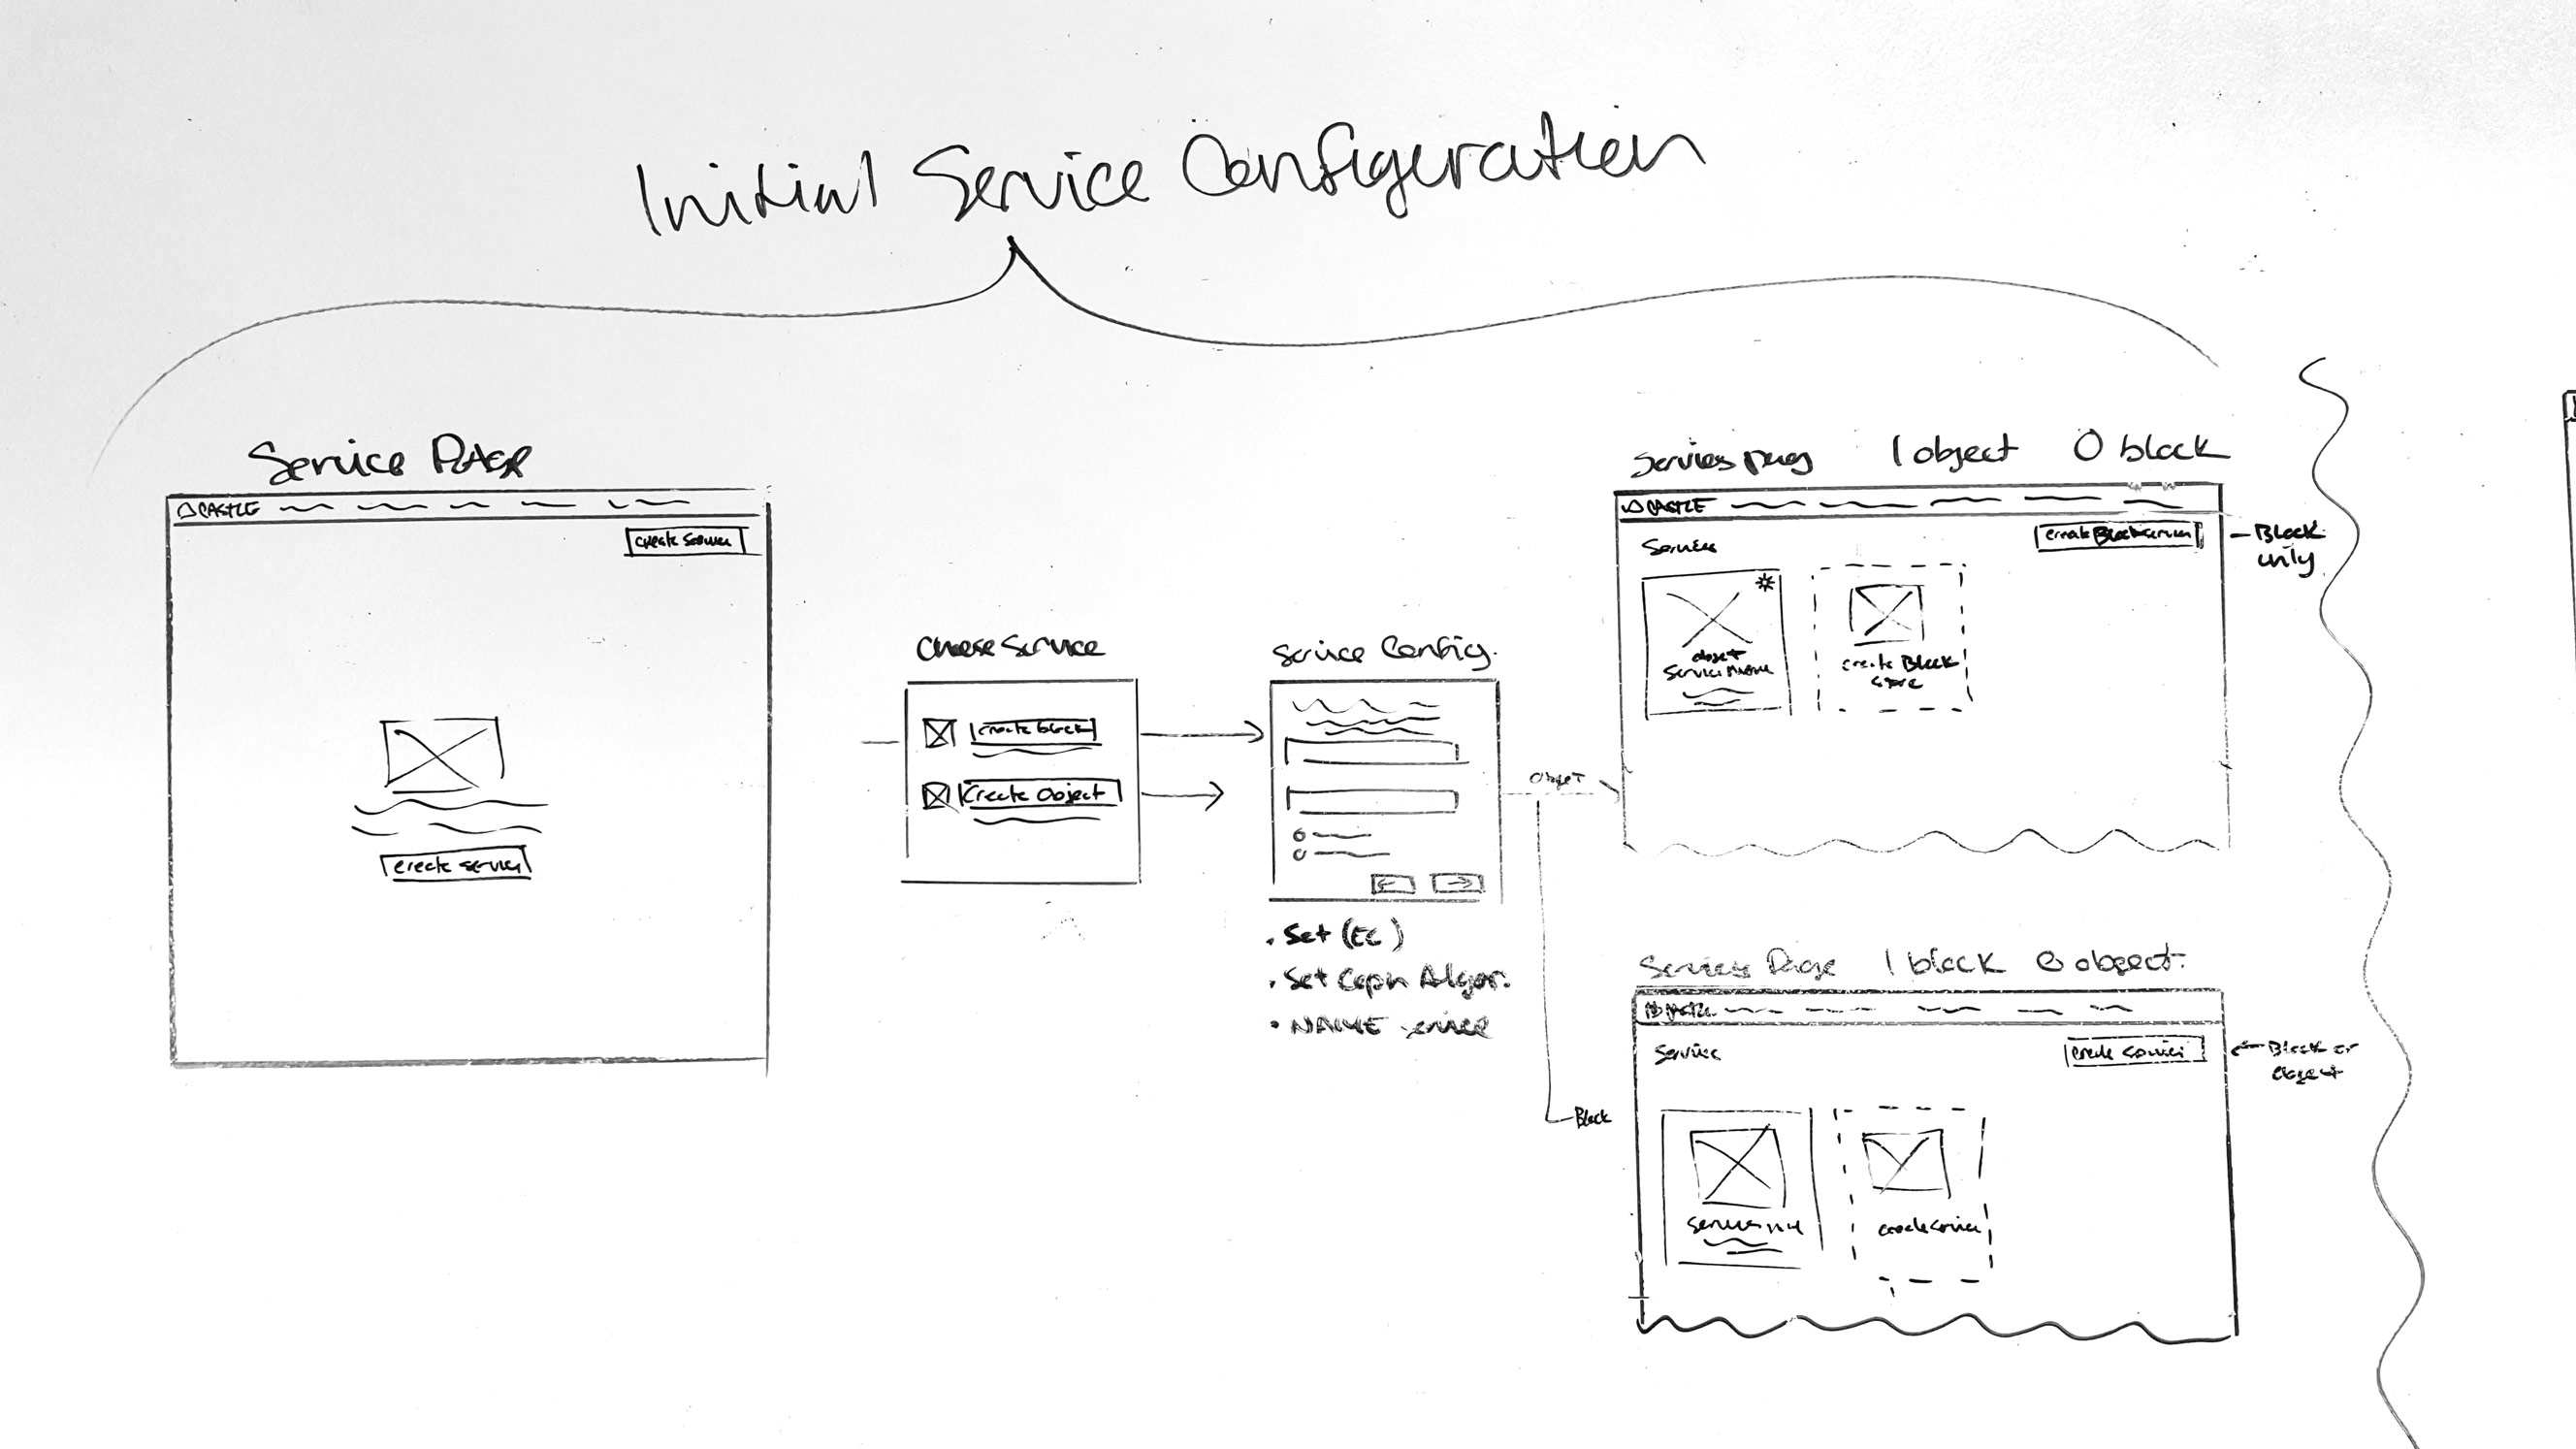 Initial Service Configuration
Service Page
CASTLE
create service
create service
Choose Service
create block
Create Object
Service Config.
• Set (EC)
• Set Ceph Algor.
• NAME service
Object
Block
Services page 1 object 0 block
CASTLE
Services
create Block service
Block only
object
Service Name
create Block
Services Page 1 block 0 object
CASTLE
Services
create service
Block or
object
Service
create service